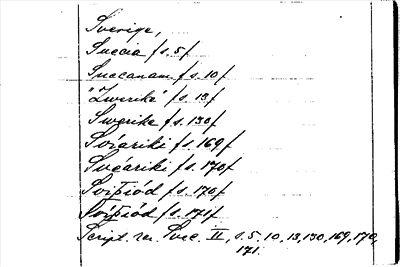 Sverige,
Suecia /s. 5/
Suecanam /s. 10/
"Zwerike" /s. 13/
Swerike /s. 130/
Svíaríki /s. 169/
Svéaríki /s. 170/
Svíþiód /s. 170/
Svíþiód /s. 171/
Script. rer. Svec. II, s. 5, 10, 13, 130, 169, 170,
171.